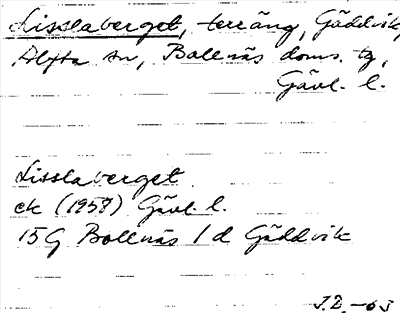 Lisslaberget, terräng, Gäddvik,
Alfta sn, Bollnäs doms. tg,
Gävl. l.
Lisslaberget
ek (1958) Gävl. l.
15G Bollnäs 1d Gäddvik
J.D. -63